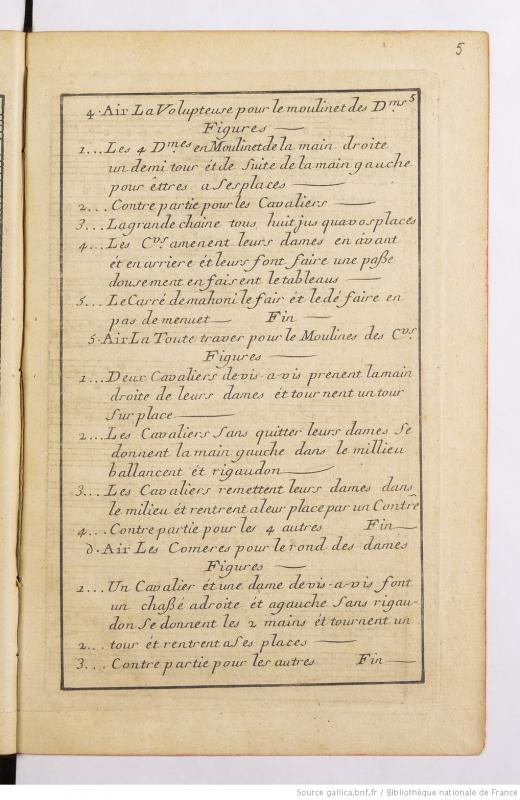 5
5
4. Air La Volupteuse pour le moulinet des D.mes
Figures —
1... Les 4 D.mes en Moulinet de la main droite
un demi tour ét de suite de la main gauche
pour êttres a ses places —
2... Contre partie pour les Cavaliers —
3... La grande chaine tous huit jus qua vos places
4... Les C.vs amenent leurs dames en avant
ét en arriere ét leurs font faire une paße
dousement en faisent le tableaus —
5... Le Carré de mahoni le fair ét le dé faire en
pas de menuet — Fin —
5. Air La Toute traver pour le Moulines des C.vs
Figures —
1... Deux Cavaliers de vis-a-vis prenent la main
droite de leurs dames ét tournent un tour
Sur place —
2... Les Cavaliers Sans quitter leurs dames Se
donnent la main gauche dans le millieu
ballancent ét rigaudon —
3... Les Cavaliers remettent leurs dames dans
le milieu ét rentrent a leur place par un Contrē
4... Contre partie pour les 4 autres Fin —
6. Air Les Comeres pour le rond des dames
Figures —
1... Un Cavalier ét une dame de vis-a-vis font
un chaßé a droite ét a gauche Sans rigau-
don Se donnent les 2 mains ét tournent un
2... tour ét rentrent a Ses places —
3... Contre partie pour les autres Fin —
Source gallica.bnf.fr / Bibliothèque nationale de France